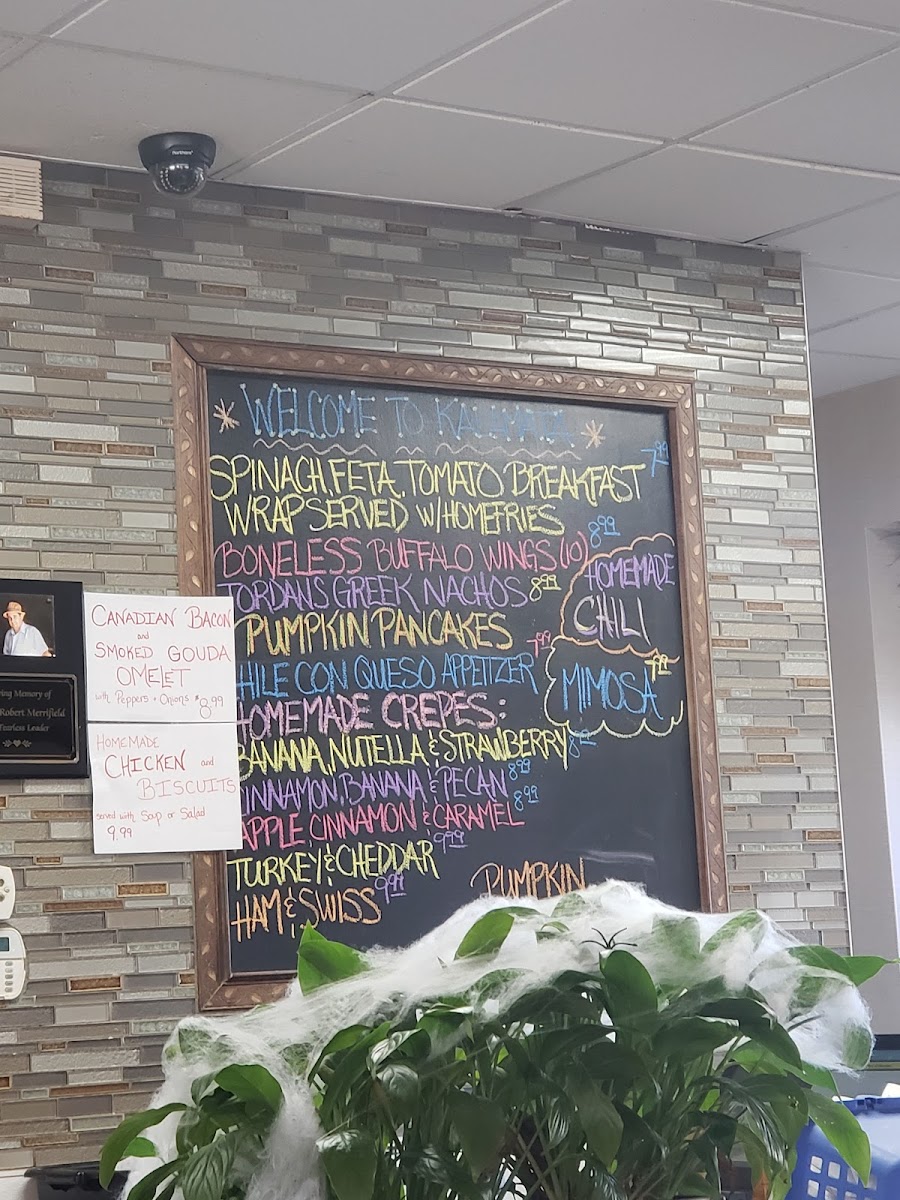 WELCOME TO KALAMATA
SPINACH, FETA, TOMATO BREAKFAST 7.99
WRAP SERVED W/ HOMEFRIES
BONELESS BUFFALO WINGS (10) 8.99
JORDANS GREEK NACHOS 8.99
PUMPKIN PANCAKES 7.99
HILE CON QUESO APPETIZER
HOMEMADE CREPES:
BANANA, NUTELLA & STRAWBERRY
INNAMON, BANANA & PECAN 8.99
APPLE, CINNAMON & CARAMEL 8.99
TURKEY & CHEDDAR 9.99
HAM & SWISS 9.99
HOMEMADE
CHILI
MIMOSA
PUMPKIN
CANADIAN BACON
and
SMOKED GOUDA
OMELET
with Peppers + Onions $8.99
HOMEMADE
CHICKEN and
BISCUITS
served with Soup or Salad
9.99
ving Memory of
Robert Merrifield
Fearless Leader